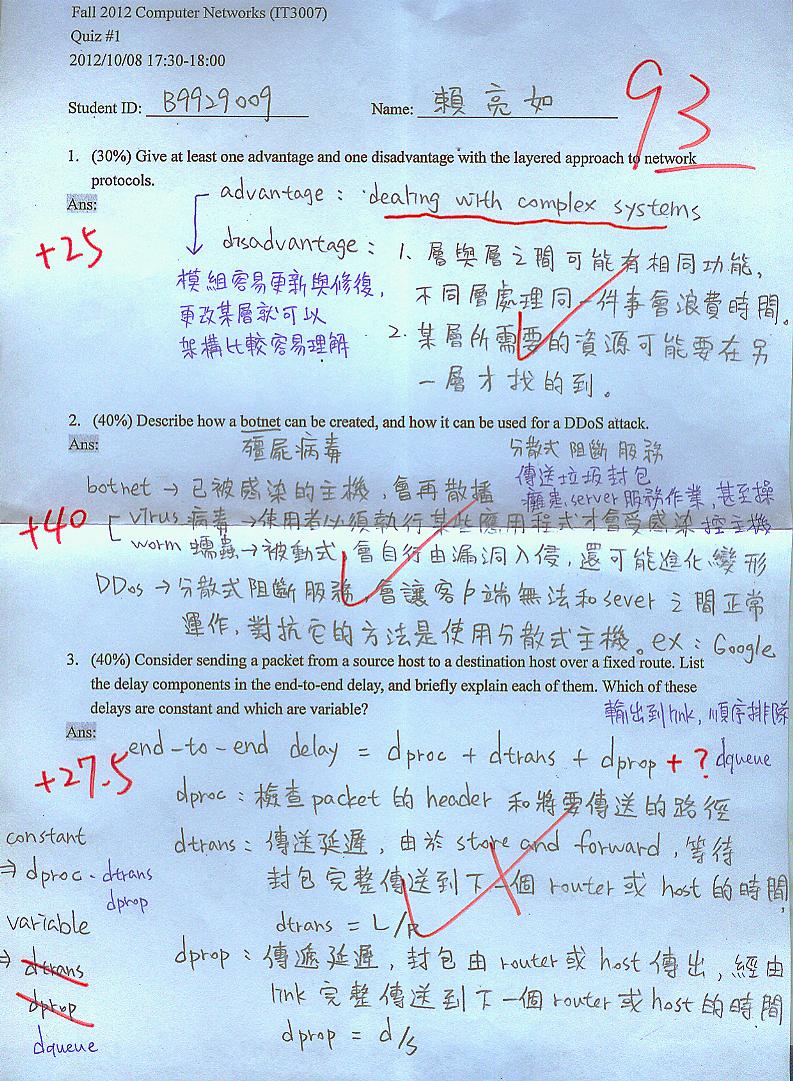 Fall 2012 Computer Networks (IT3007)
Quiz #1
2012/10/08 17:30-18:00
Student ID: B9929009 Name: 賴亮如
93
1. (30%) Give at least one advantage and one disadvantage with the layered approach to network
protocols.
Ans:
+25
advantage : dealing with complex systems
disadvantage : 1. 層與層之間可能有相同功能,
不同層處理同一件事會浪費時間。
2. 某層所需要的資源可能要在另
一層才找的到。
模組容易更新與修復,
更改某層就可以
架構比較容易理解
2. (40%) Describe how a botnet can be created, and how it can be used for a DDoS attack.
Ans:
殭屍病毒
分散式阻斷服務
傳送垃圾封包
癱瘓server服務作業,甚至操
控主機
+40
botnet → 已被感染的主機,會再散播
virus 病毒 → 使用者必須執行某些應用程式才會受感染
worm 蠕蟲 → 被動式,會自行由漏洞入侵,還可能進化變形
DDos → 分散式阻斷服務,會讓客戶端無法和sever之間正常
運作,對抗它的方法是使用分散式主機。ex : Google
3. (40%) Consider sending a packet from a source host to a destination host over a fixed route. List
the delay components in the end-to-end delay, and briefly explain each of them. Which of these
delays are constant and which are variable?
輸出到link,順序排隊
Ans:
+27.5
end-to-end delay = dproc + dtrans + dprop + ? dqueue
dproc : 檢查packet的header和將要傳送的路徑
dtrans : 傳送延遲,由於store and forward,等待
封包完整傳送到下一個router或host的時間,
dtrans = L/R
dprop : 傳遞延遲,封包由router或host傳出,經由
link完整傳送到下一個router或host的時間
dprop = d/s
constant
⇒ dproc、dtrans
dprop
variable
⇒ dtrans
dprop
dqueue